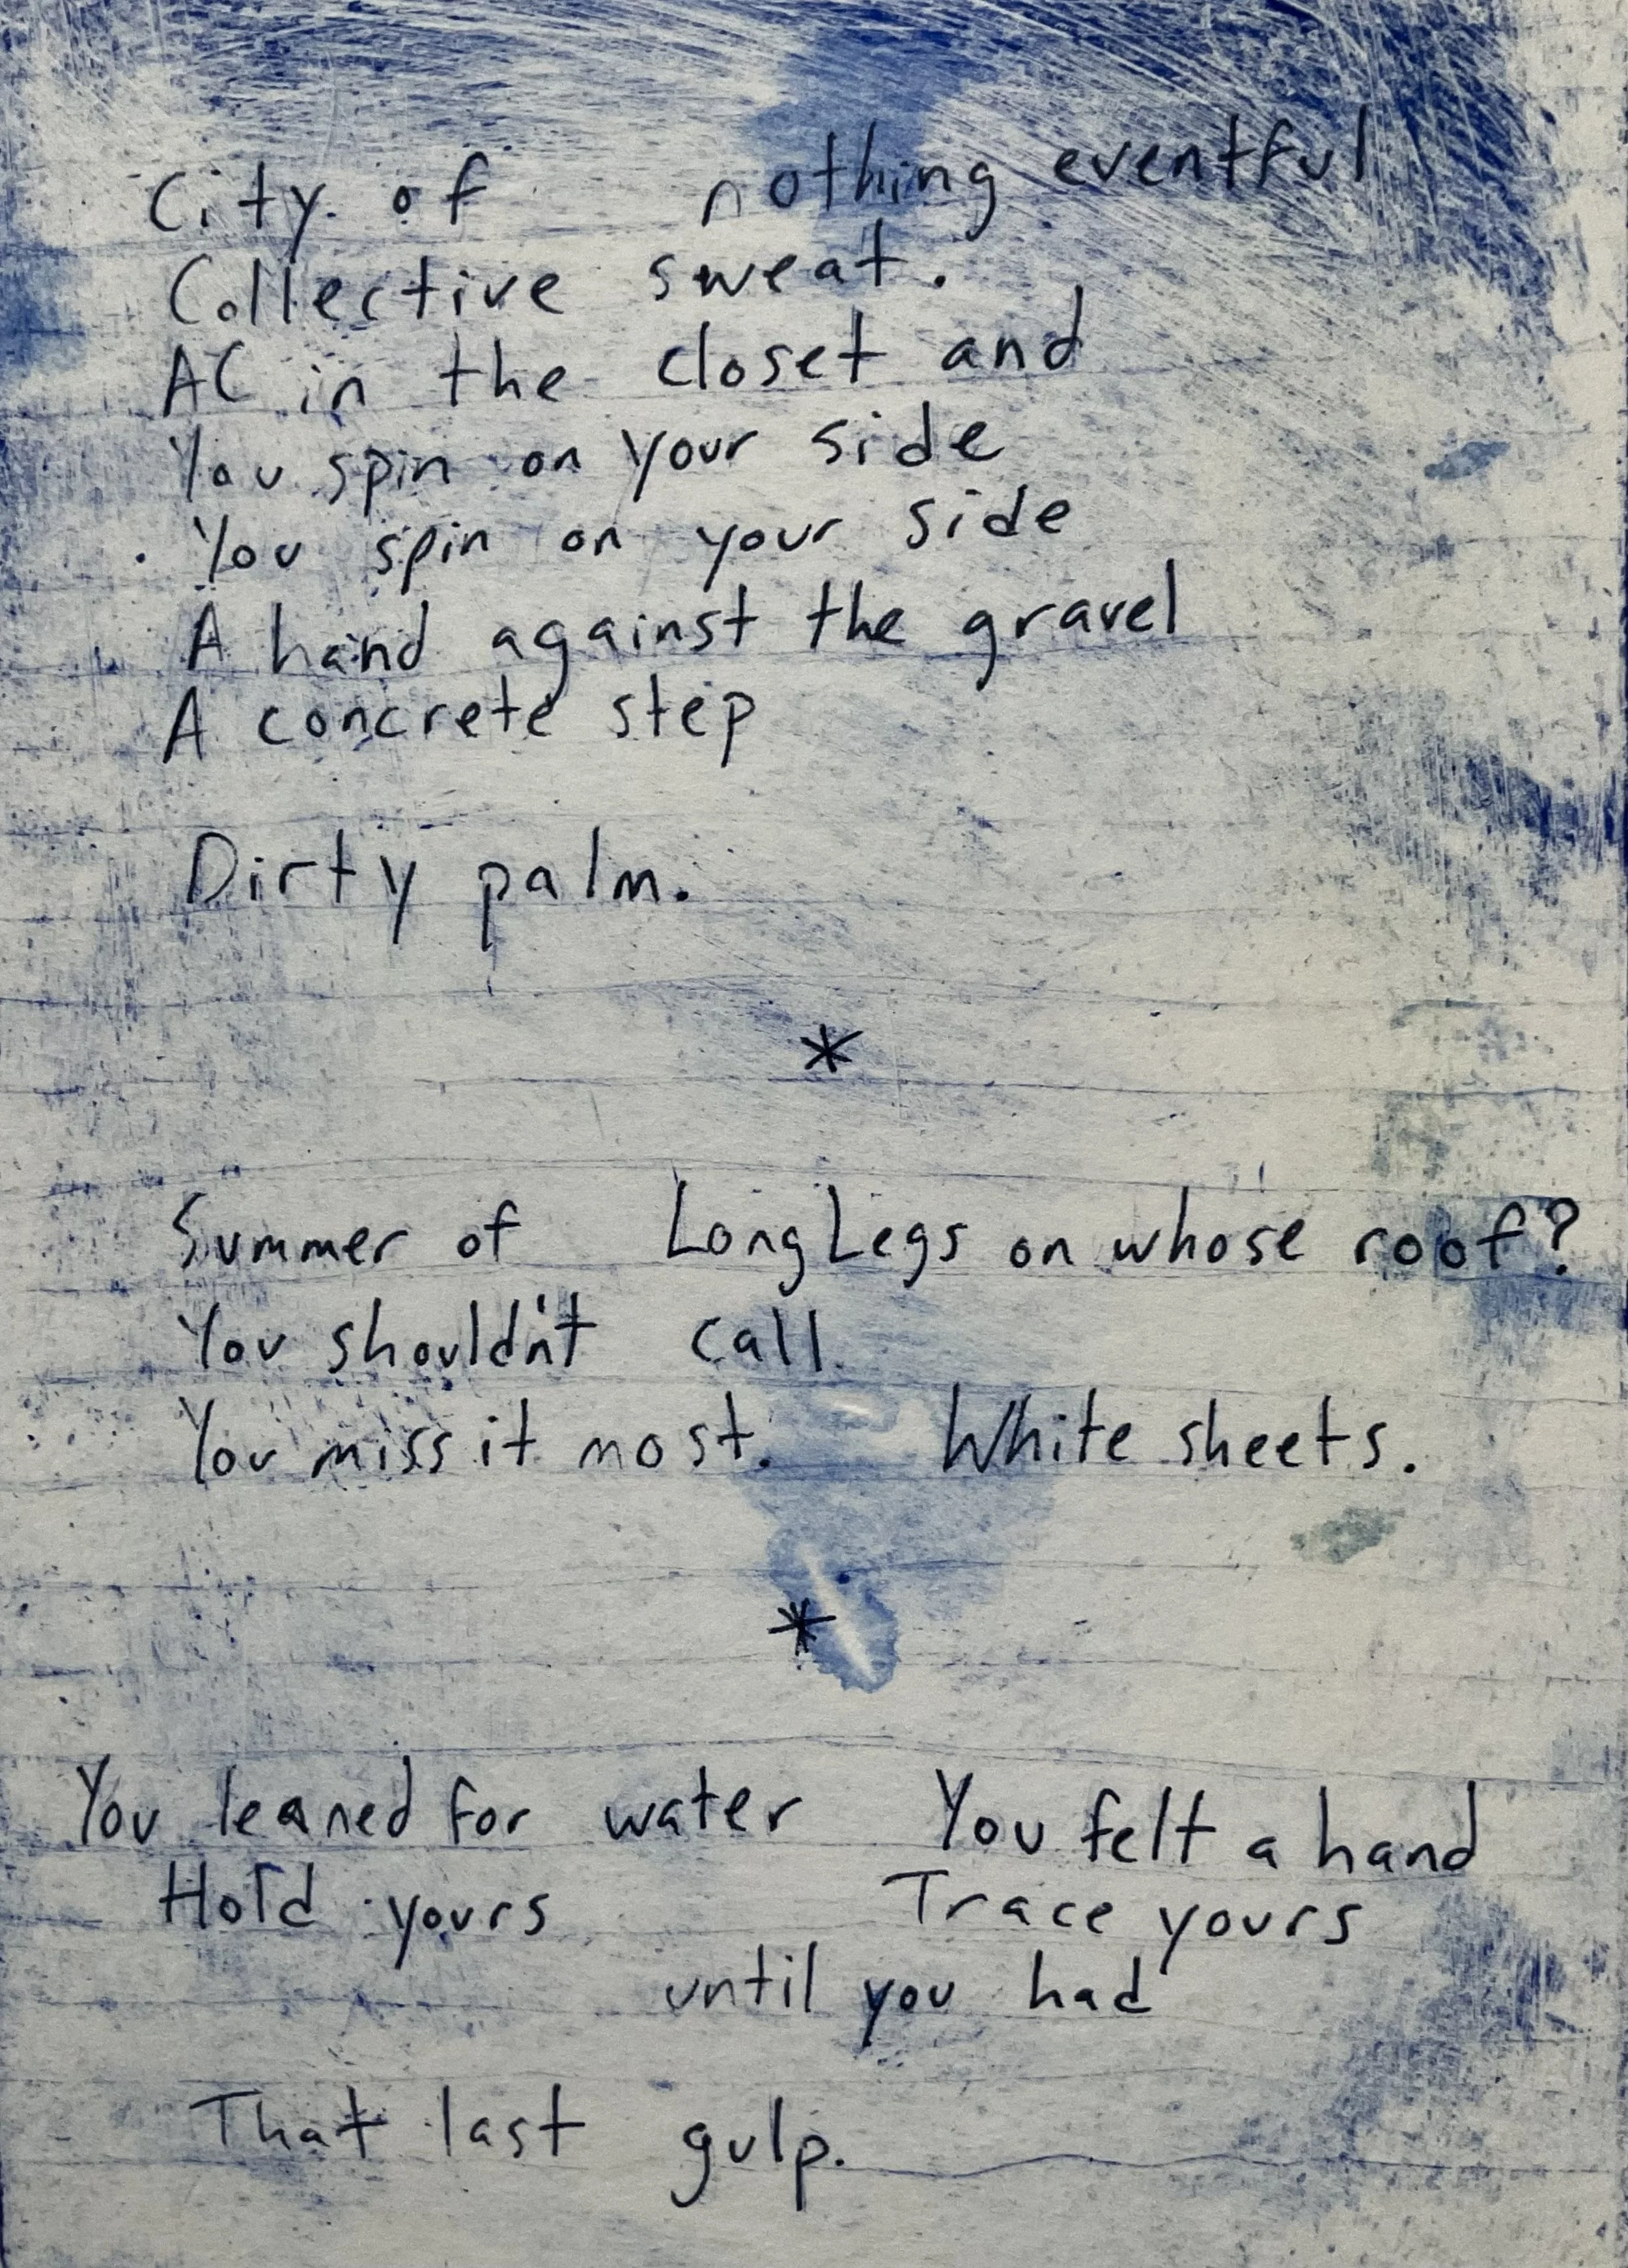 City of nothing eventful
Collective sweat.
AC in the closet and
You spin on your side
You spin on your side
A hand against the gravel
A concrete step
Dirty palm.
*
Summer of LongLegs on whose roof?
You shouldn't call
You miss it most. White sheets.
*
You leaned for water You felt a hand
Hold yours Trace yours
until you had
That last gulp.